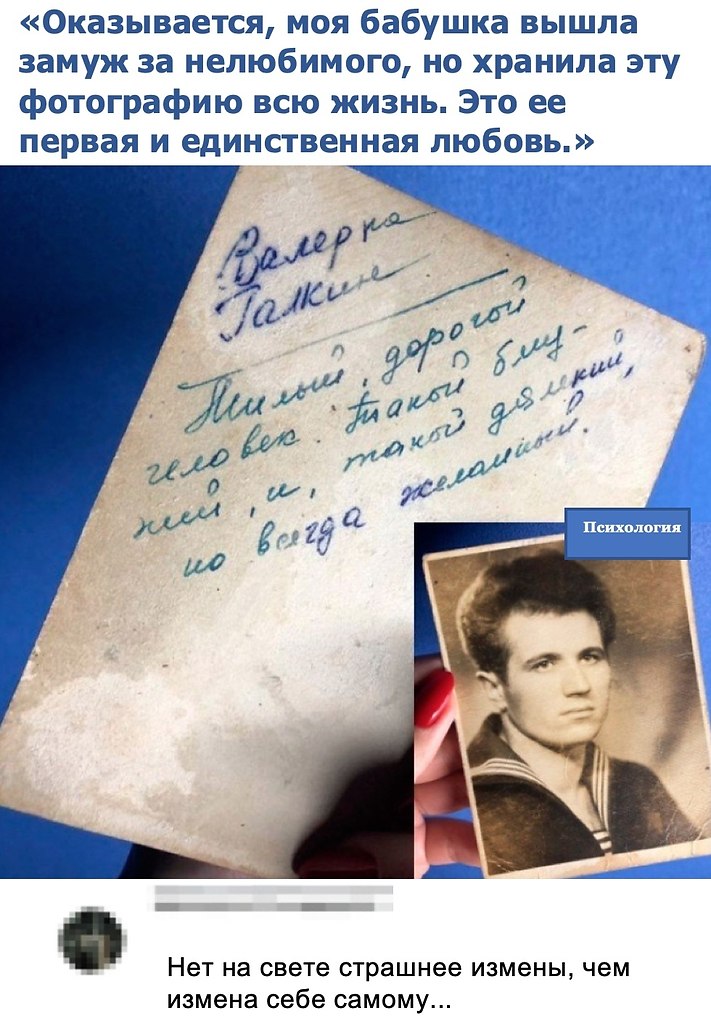 «Оказывается, моя бабушка вышла
замуж за нелюбимого, но хранила эту
фотографию всю жизнь. Это ее
первая и единственная любовь.»
Валерка
Галкин
Милый, дорогой
человек. Такой бли-
зкий, и, такой далекий,
но всегда желанный.
Психология
Нет на свете страшнее измены, чем
измена себе самому...